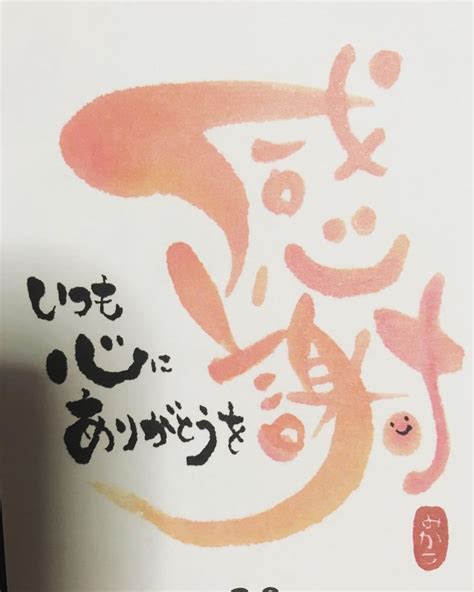 感謝
いつも
心に
ありがとうを
みかこ